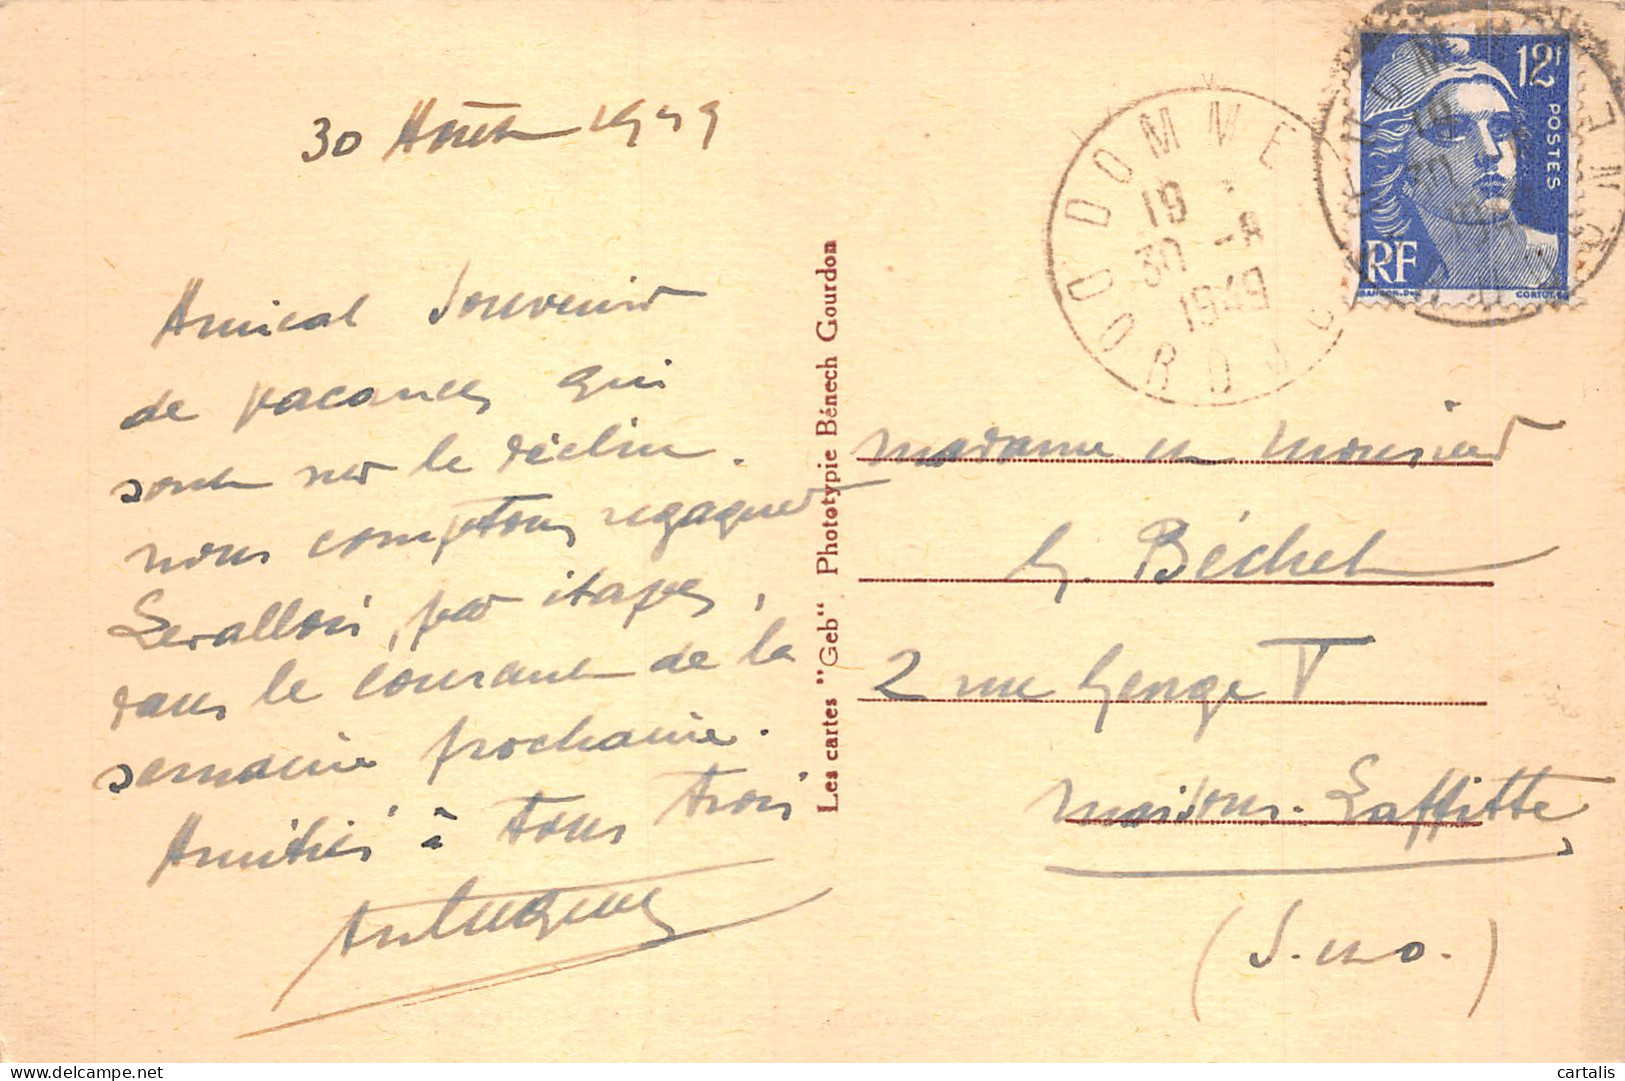 30 Août 1949
Amical Souvenir
de vacances qui
sont sur le déclin.
nous comptons regagner
Levallois, par étapes,
dans le courant de la
semaine prochaine.
Amitiés à tous trois
Les cartes "Geb" Phototypie Bénech Gourdon
DOMME
19
30 -8
1949
DORDOGNE
12F
POSTES
RF
CORTOT
Madame et Monsieur
G. Béchet
2 rue George V
Maisons-Laffitte
(S. et O.)
cartalis